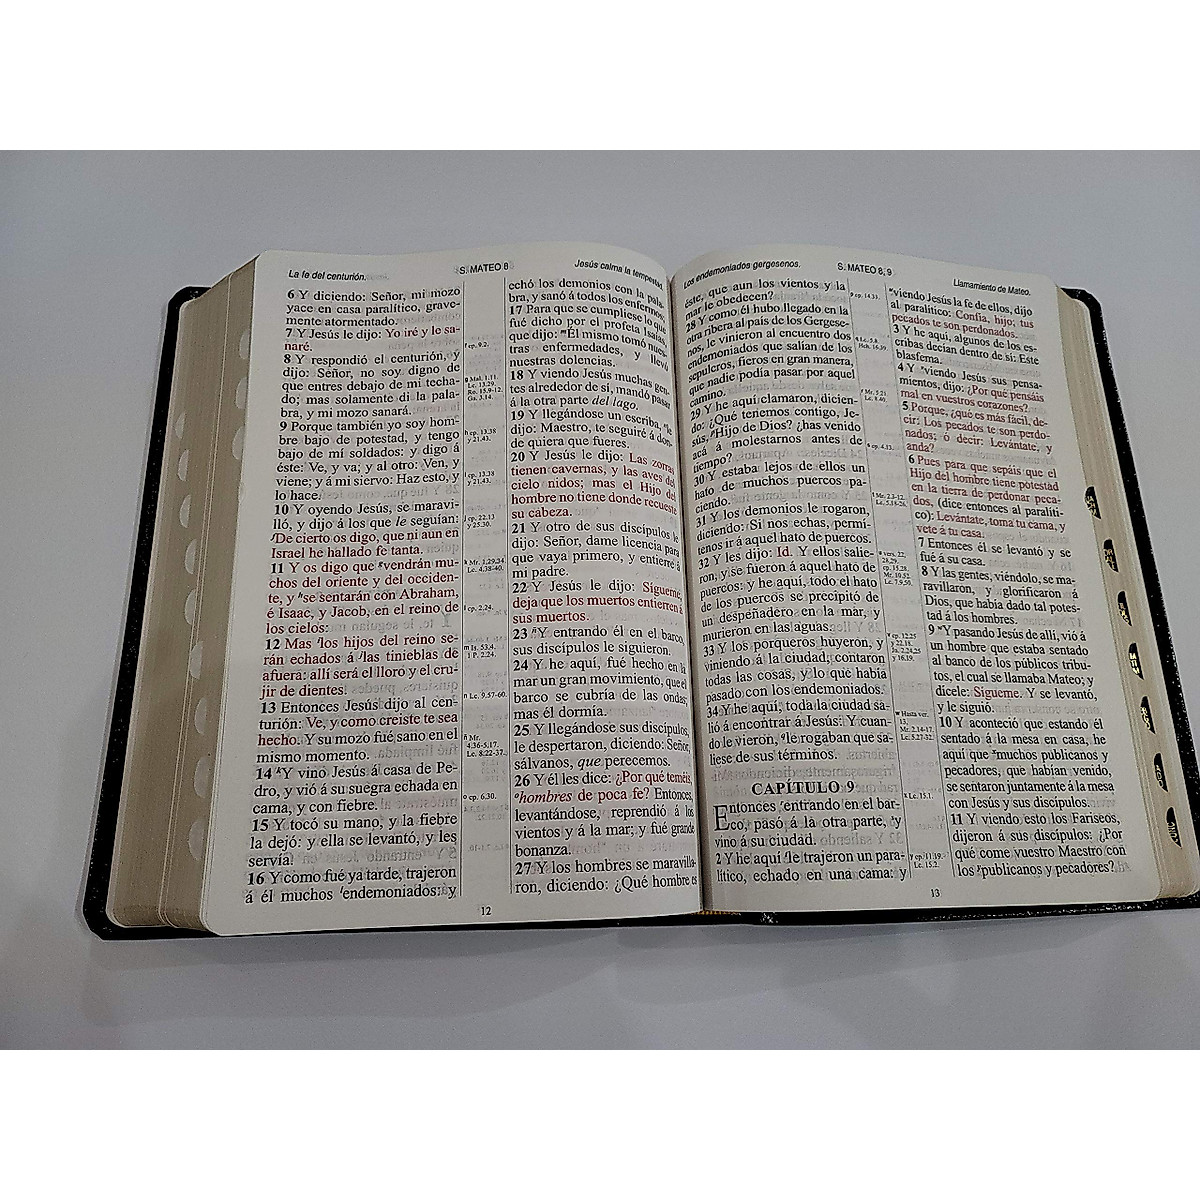 La fe del centurión.
S. MATEO 8
Jesús calma la tempestad
6 Y diciendo: Señor, mi mozo
yace en casa paralítico, grave-
mente atormentado.
7 Y Jesús le dijo: Yo iré y le sa-
naré.
8 Y respondió el centurión, y
dijo: Señor, no soy digno de
que entres debajo de mi techa-
do; mas solamente di la pala-
bra, y mi mozo sanará.
9 Porque también yo soy hom-
bre bajo de potestad, y tengo
bajo de mí soldados: y digo á
éste: Ve, y va; y al otro: Ven, y
viene; y á mi siervo: Haz esto, y
lo hace.
10 Y oyendo Jesús, se maravi-
lló, y dijo á los que le seguían:
De cierto os digo, que ni aun en
Israel he hallado fe tanta.
11 Y os digo que vendrán mu-
chos del oriente y del occiden-
te, y se sentarán con Abraham,
é Isaac, y Jacob, en el reino de
los cielos:
12 Mas los hijos del reino se-
rán echados á las tinieblas de
afuera: allí será el lloro y el cru-
jir de dientes.
13 Entonces Jesús dijo al cen-
turión: Ve, y como creiste te sea
hecho. Y su mozo fué sano en el
mismo momento.
14 Y vino Jesús á casa de Pe-
dro, y vió á su suegra echada en
cama, y con fiebre.
15 Y tocó su mano, y la fiebre
la dejó: y ella se levantó, y les
servía.
16 Y como fué ya tarde, trajeron
á él muchos endemoniados: y
f cp. 9.2.
g Mal. 1.11.
Lc. 13.29.
Ro. 15.9-12.
Ga. 3.14.
h cp. 13.38
y 21.43.
i cp. 13.38
y 21.43.
j cp. 22.13
y 25.30.
k Mr. 1.29-34
Lc. 4.38-40.
l cp. 2.24.
m Is. 53.4.
1 P. 2.24.
n Lc. 9.57-60.
ñ Mr.
4.36-5.17.
Lc. 8.22-37.
o cp. 6.30.
echó los demonios con la pala-
bra, y sanó á todos los enfermos;
17 Para que se cumpliese lo que
fué dicho por el profeta Isaías,
que dijo: Él mismo tomó nues-
tras enfermedades, y llevó
nuestras dolencias.
18 Y viendo Jesús muchas gen-
tes alrededor de sí, mandó pasar
á la otra parte del lago.
19 Y llegándose un escriba, le
dijo: Maestro, te seguiré á don-
de quiera que fueres.
20 Y Jesús le dijo: Las zorras
tienen cavernas, y las aves del
cielo nidos; mas el Hijo del
hombre no tiene donde recueste
su cabeza.
21 Y otro de sus discípulos le
dijo: Señor, dame licencia para
que vaya primero, y entierre á
mi padre.
22 Y Jesús le dijo: Sígueme;
deja que los muertos entierren á
sus muertos.
23 Y entrando él en el barco,
sus discípulos le siguieron.
24 Y he aquí, fué hecho en la
mar un gran movimiento, que el
barco se cubría de las ondas;
mas él dormía.
25 Y llegándose sus discípulos,
le despertaron, diciendo: Señor,
sálvanos, que perecemos.
26 Y él les dice: ¿Por qué teméis,
hombres de poca fe? Entonces,
levantándose, reprendió á los
vientos y á la mar; y fué grande
bonanza.
27 Y los hombres se maravilla-
ron, diciendo: ¿Qué hombre es
12
Los endemoniados gergesenos.
S. MATEO 8, 9
Llamamiento de Mateo.
éste, que aun los vientos y la
mar le obedecen?
28 Y como él hubo llegado en la
otra ribera al país de los Gergese-
nos, le vinieron al encuentro dos
endemoniados que salían de los
sepulcros, fieros en gran manera,
que nadie podía pasar por aquel
camino.
29 Y he aquí clamaron, dicien-
do: ¿Qué tenemos contigo, Je-
sús, Hijo de Dios? ¿has venido
acá á molestarnos antes de
tiempo?
30 Y estaba lejos de ellos un
hato de muchos puercos pa-
ciendo.
31 Y los demonios le rogaron,
diciendo: Si nos echas, permí-
tenos ir á aquel hato de puercos.
32 Y les dijo: Id. Y ellos salie-
ron, y se fueron á aquel hato de
puercos: y he aquí, todo el hato
de los puercos se precipitó de
un despeñadero en la mar, y
murieron en las aguas.
33 Y los porqueros huyeron, y
viniendo á la ciudad, contaron
todas las cosas, y lo que había
pasado con los endemoniados.
34 Y he aquí, toda la ciudad sa-
lió á encontrar á Jesús: Y cuan-
do le vieron, le rogaban que sa-
liese de sus términos.
CAPÍTULO 9
Entonces entrando en el bar-
co, pasó á la otra parte, y
vino á su ciudad.
2 Y he aquí le trajeron un para-
lítico, echado en una cama: y
p cp. 14.33.
q Lc. 5.8.
Hch. 16.39.
r Mr. 5.21
Lc. 8.40.
s cp. 4.13.
t Mr. 2.3-12.
Lc. 5.18-26.
u vers. 22,
28,29.
cp. 15.28.
Mr. 10.52.
Lc. 7.9,50.
v cp. 12.25
y 22.18.
w Hasta ver.
13,
Mr. 2.14-17.
Lc. 5.27-32.
x Lc. 15.1.
y cp. 11.19.
Lc. 15.2.
viendo Jesús la fe de ellos, dijo
al paralítico: Confía, hijo; tus
pecados te son perdonados.
3 Y he aquí, algunos de los es-
cribas decían dentro de sí: Este
blasfema.
4 Y viendo Jesús sus pensa-
mientos, dijo: ¿Por qué pensáis
mal en vuestros corazones?
5 Porque, ¿qué es más fácil, de-
cir: Los pecados te son perdo-
nados; ó decir: Levántate, y
anda?
6 Pues para que sepáis que el
Hijo del hombre tiene potestad
en la tierra de perdonar peca-
dos, (dice entonces al paralíti-
co): Levántate, toma tu cama, y
vete á tu casa.
7 Entonces él se levantó y se
fué á su casa.
8 Y las gentes, viéndolo, se ma-
ravillaron, y glorificaron á
Dios, que había dado tal potes-
tad á los hombres.
9 Y pasando Jesús de allí, vió á
un hombre que estaba sentado
al banco de los públicos tribu-
tos, el cual se llamaba Mateo; y
dícele: Sígueme. Y se levantó,
y le siguió.
10 Y aconteció que estando él
sentado á la mesa en casa, he
aquí que muchos publicanos y
pecadores, que habían venido,
se sentaron juntamente á la mesa
con Jesús y sus discípulos.
11 Y viendo esto los Fariseos,
dijeron á sus discípulos: ¿Por
qué come vuestro Maestro con
los publicanos y pecadores?
13